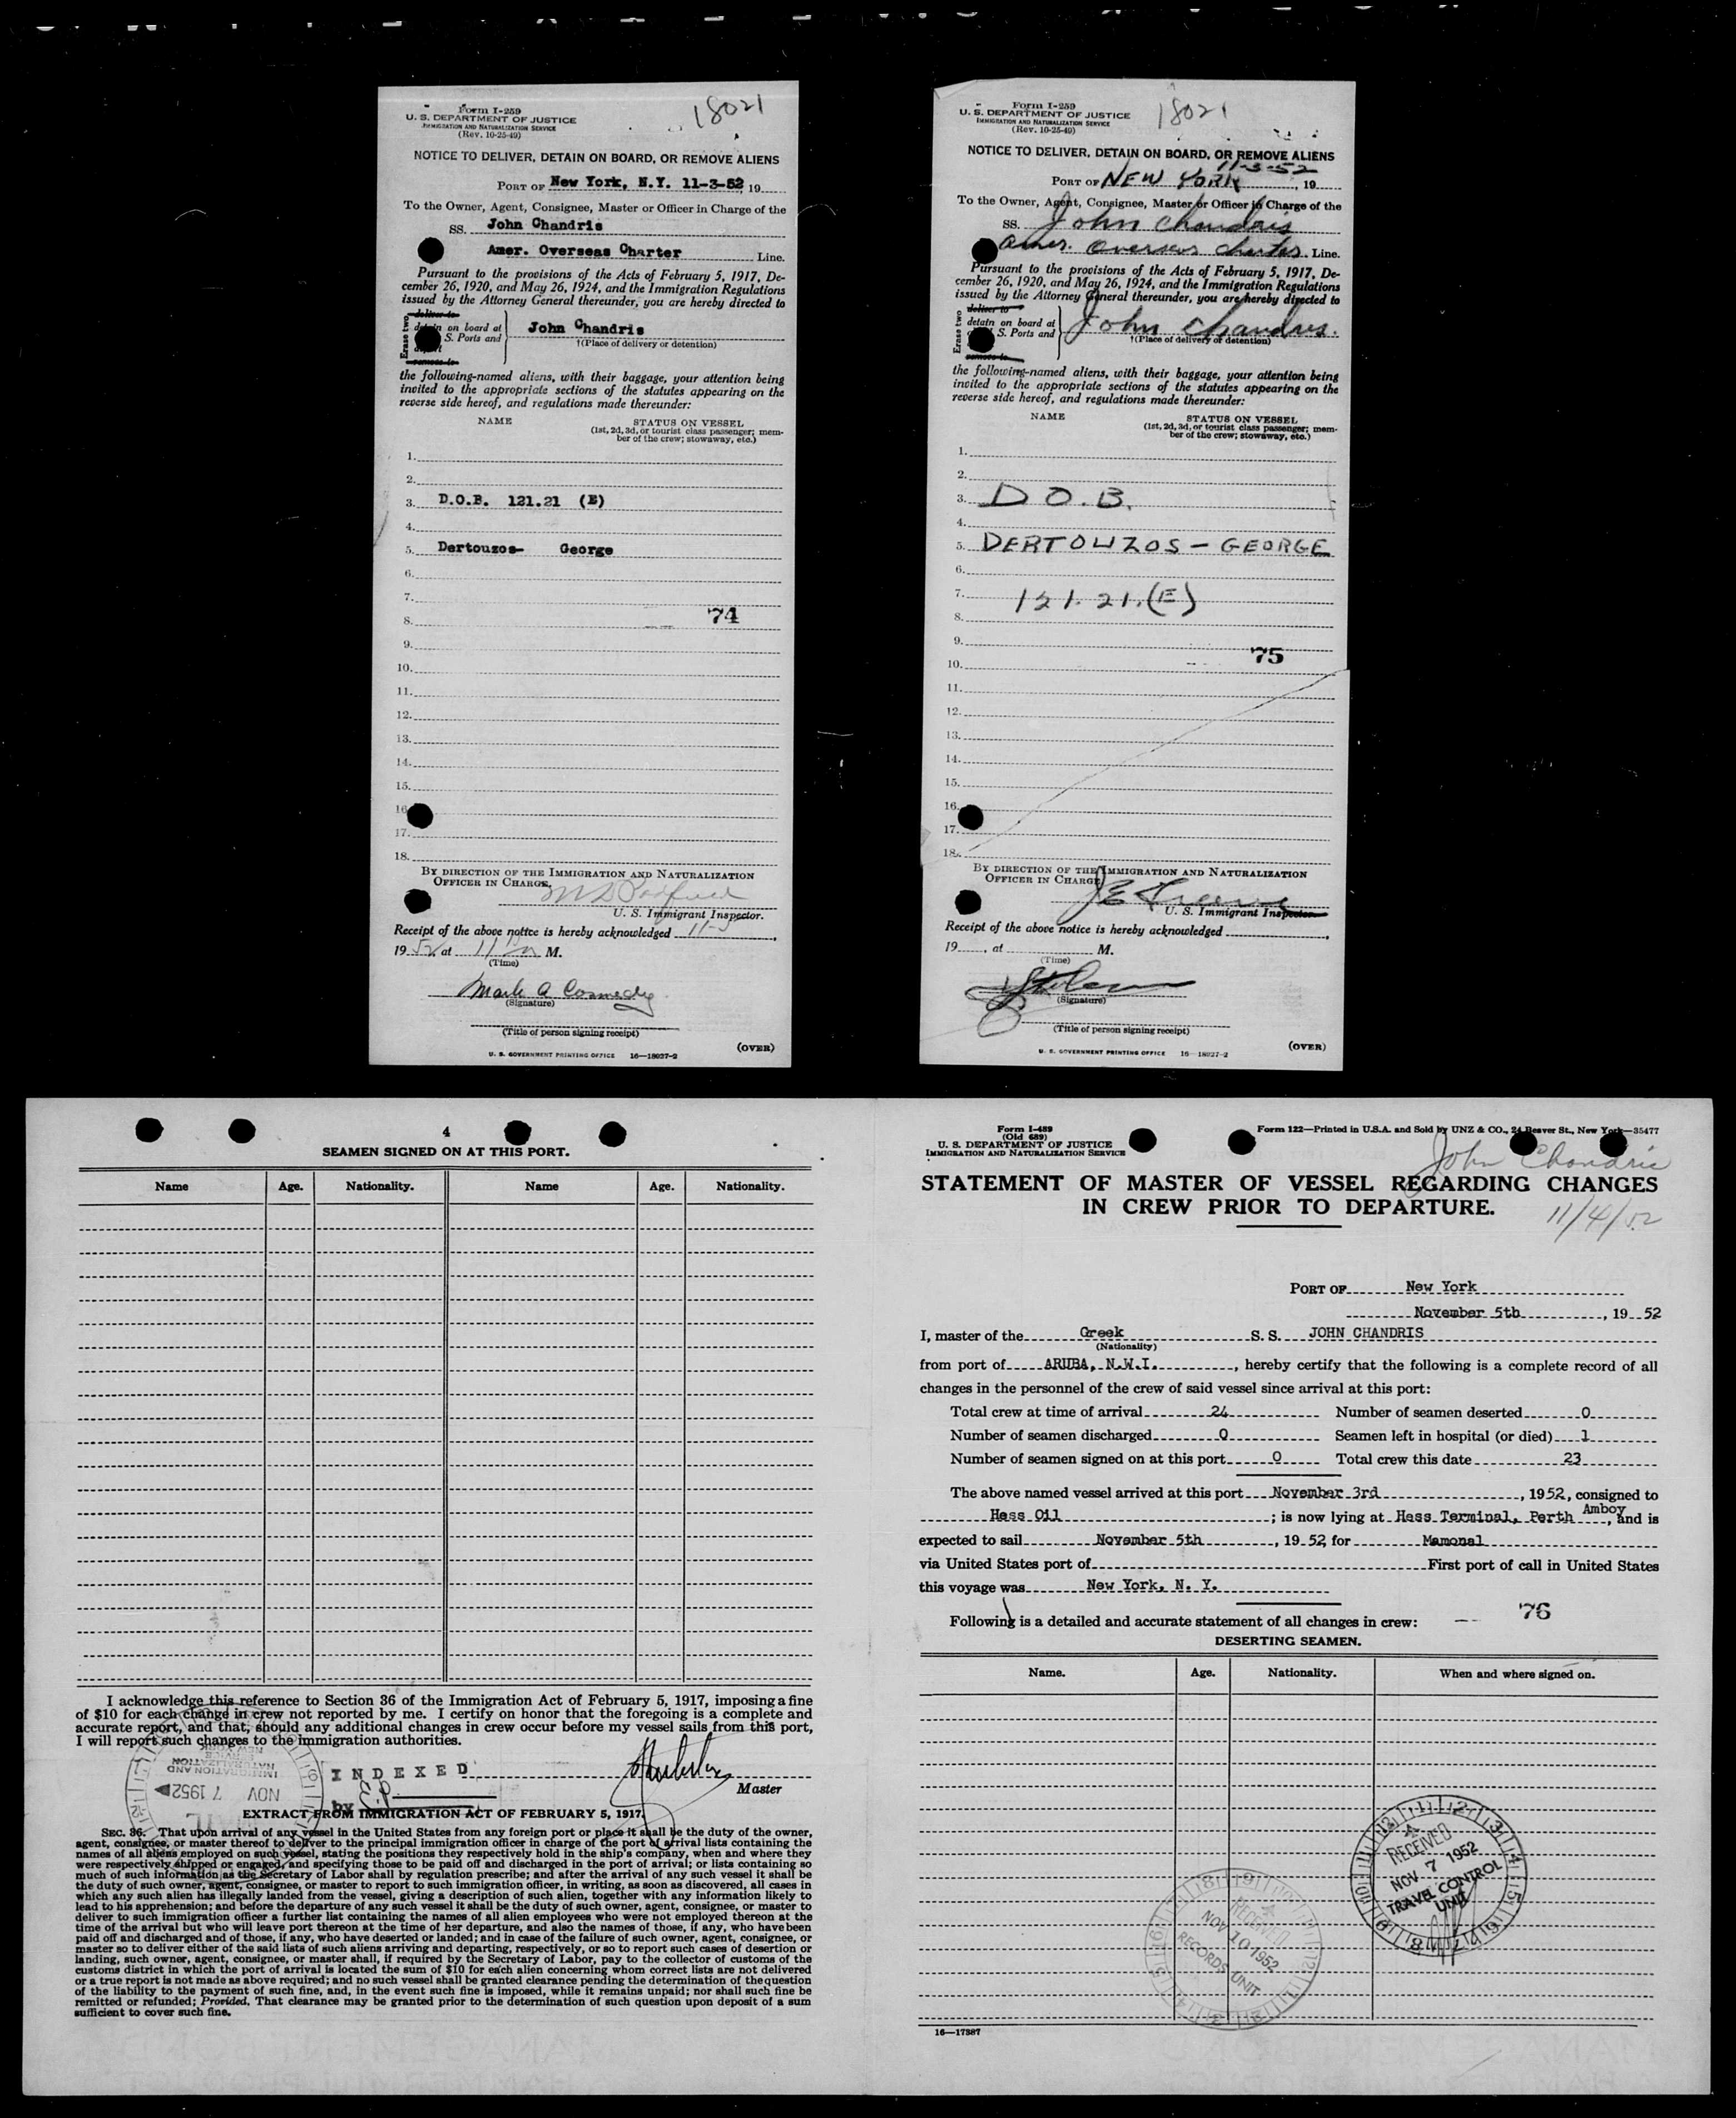 Form I-259
U. S. DEPARTMENT OF JUSTICE
IMMIGRATION AND NATURALIZATION SERVICE
(Rev. 10-25-49)
18021
NOTICE TO DELIVER, DETAIN ON BOARD, OR REMOVE ALIENS
PORT OF New York, N.Y. 11-3-52, 19
To the Owner, Agent, Consignee, Master or Officer in Charge of the
SS. John Chandris
Amer. Overseas Charter Line.
Pursuant to the provisions of the Acts of February 5, 1917, De-
cember 26, 1920, and May 26, 1924, and the Immigration Regulations
issued by the Attorney General thereunder, you are hereby directed to
Erase two
deliver to
detain on board at
S. Ports and
remove to
John Chandris
†(Place of delivery or detention)
the following-named aliens, with their baggage, your attention being
invited to the appropriate sections of the statutes appearing on the
reverse side hereof, and regulations made thereunder:
NAME STATUS ON VESSEL
(1st, 2d, 3d, or tourist class passenger; mem-
ber of the crew; stowaway, etc.)
1.
2.
3. D.O.B. 121.21 (E)
4.
5. Dertouzos- George
6.
7.
74
8.
9.
10.
11.
12.
13.
14.
15.
16
17.
18.
BY DIRECTION OF THE IMMIGRATION AND NATURALIZATION
OFFICER IN CHARGE,
U. S. Immigrant Inspector.
Receipt of the above notice is hereby acknowledged 11-5,
19 52 at 11 M.
(Time)
Mark A
(Signature)
(Title of person signing receipt)
(OVER)
U. S. GOVERNMENT PRINTING OFFICE 16—18027-2
Form I-259
U. S. DEPARTMENT OF JUSTICE
IMMIGRATION AND NATURALIZATION SERVICE
(Rev. 10-25-49)
18021
NOTICE TO DELIVER, DETAIN ON BOARD, OR REMOVE ALIENS
11-3-52
PORT OF NEW YORK, 19
To the Owner, Agent, Consignee, Master or Officer in Charge of the
SS. John Chandris
Amer. Overseas Charter Line.
Pursuant to the provisions of the Acts of February 5, 1917, De-
cember 26, 1920, and May 26, 1924, and the Immigration Regulations
issued by the Attorney General thereunder, you are hereby directed to
Erase two
deliver to
detain on board at
S. Ports and
remove to
John Chandris.
†(Place of delivery or detention)
the following-named aliens, with their baggage, your attention being
invited to the appropriate sections of the statutes appearing on the
reverse side hereof, and regulations made thereunder:
NAME STATUS ON VESSEL
(1st, 2d, 3d, or tourist class passenger; mem-
ber of the crew; stowaway, etc.)
1.
2.
3. D.O.B.
4.
5. DERTOUZOS - GEORGE
6.
7. 121.21.(E)
8.
9.
75
10.
11.
12.
13.
14.
15.
16.
17.
18.
BY DIRECTION OF THE IMMIGRATION AND NATURALIZATION
OFFICER IN CHARGE,
U. S. Immigrant Inspector
Receipt of the above notice is hereby acknowledged,
19, at M.
(Time)
(Signature)
(Title of person signing receipt)
(OVER)
U. S. GOVERNMENT PRINTING OFFICE 16—18027-2
4
SEAMEN SIGNED ON AT THIS PORT.
Name Age. Nationality. Name Age. Nationality.
I acknowledge this reference to Section 36 of the Immigration Act of February 5, 1917, imposing a fine
of $10 for each change in crew not reported by me. I certify on honor that the foregoing is a complete and
accurate report, and that, should any additional changes in crew occur before my vessel sails from this port,
I will report such changes to the immigration authorities.
IMMIGRATION AND
NATURALIZATION
NOV 7 1952
INDEXED
by
Master
EXTRACT FROM IMMIGRATION ACT OF FEBRUARY 5, 1917.
SEC. 36. That upon arrival of any vessel in the United States from any foreign port or place it shall be the duty of the owner,
agent, consignee, or master thereof to deliver to the principal immigration officer in charge of the port of arrival lists containing the
names of all aliens employed on such vessel, stating the positions they respectively hold in the ship's company, when and where they
were respectively shipped or engaged, and specifying those to be paid off and discharged in the port of arrival; or lists containing so
much of such information as the Secretary of Labor shall by regulation prescribe; and after the arrival of any such vessel it shall be
the duty of such owner, agent, consignee, or master to report to such immigration officer, in writing, as soon as discovered, all cases in
which any such alien has illegally landed from the vessel, giving a description of such alien, together with any information likely to
lead to his apprehension; and before the departure of any such vessel it shall be the duty of such owner, agent, consignee, or master to
deliver to such immigration officer a further list containing the names of all alien employees who were not employed thereon at the
time of the arrival but who will leave port thereon at the time of her departure, and also the names of those, if any, who have been
paid off and discharged and of those, if any, who have deserted or landed; and in case of the failure of such owner, agent, consignee, or
master so to deliver either of the said lists of such aliens arriving and departing, respectively, or so to report such cases of desertion or
landing, such owner, agent, consignee, or master shall, if required by the Secretary of Labor, pay to the collector of customs of the
customs district in which the port of arrival is located the sum of $10 for each alien concerning whom correct lists are not delivered
or a true report is not made as above required; and no such vessel shall be granted clearance pending the determination of the question
of the liability to the payment of such fine, and, in the event such fine is imposed, while it remains unpaid; nor shall such fine be
remitted or refunded; Provided, That clearance may be granted prior to the determination of such question upon deposit of a sum
sufficient to cover such fine.
Form I-489
(Old 689)
U. S. DEPARTMENT OF JUSTICE
IMMIGRATION AND NATURALIZATION SERVICE
Form 122—Printed in U.S.A. and Sold by UNZ & CO., 24 Beaver St., New York—35477
John Chandris
STATEMENT OF MASTER OF VESSEL REGARDING CHANGES
IN CREW PRIOR TO DEPARTURE.
11/4/52
PORT OF New York
November 5th, 19 52
I, master of the Greek S. S. JOHN CHANDRIS
(Nationality)
from port of ARUBA, N.W.I., hereby certify that the following is a complete record of all
changes in the personnel of the crew of said vessel since arrival at this port:
Total crew at time of arrival 24 Number of seamen deserted 0
Number of seamen discharged 0 Seamen left in hospital (or died) 1
Number of seamen signed on at this port 0 Total crew this date 23
The above named vessel arrived at this port November 3rd, 1952, consigned to
Hess Oil; is now lying at Hess Terminal, Perth Amboy, and is
expected to sail November 5th, 19 52 for Mamonal
via United States port of First port of call in United States
this voyage was New York, N. Y.
Following is a detailed and accurate statement of all changes in crew:
76
DESERTING SEAMEN.
Name. Age. Nationality. When and where signed on.
RECEIVED
NOV 7 1952
TRAVEL CONTROL
UNIT
RECEIVED
NOV 10 1952
RECORDS UNIT
16—17387